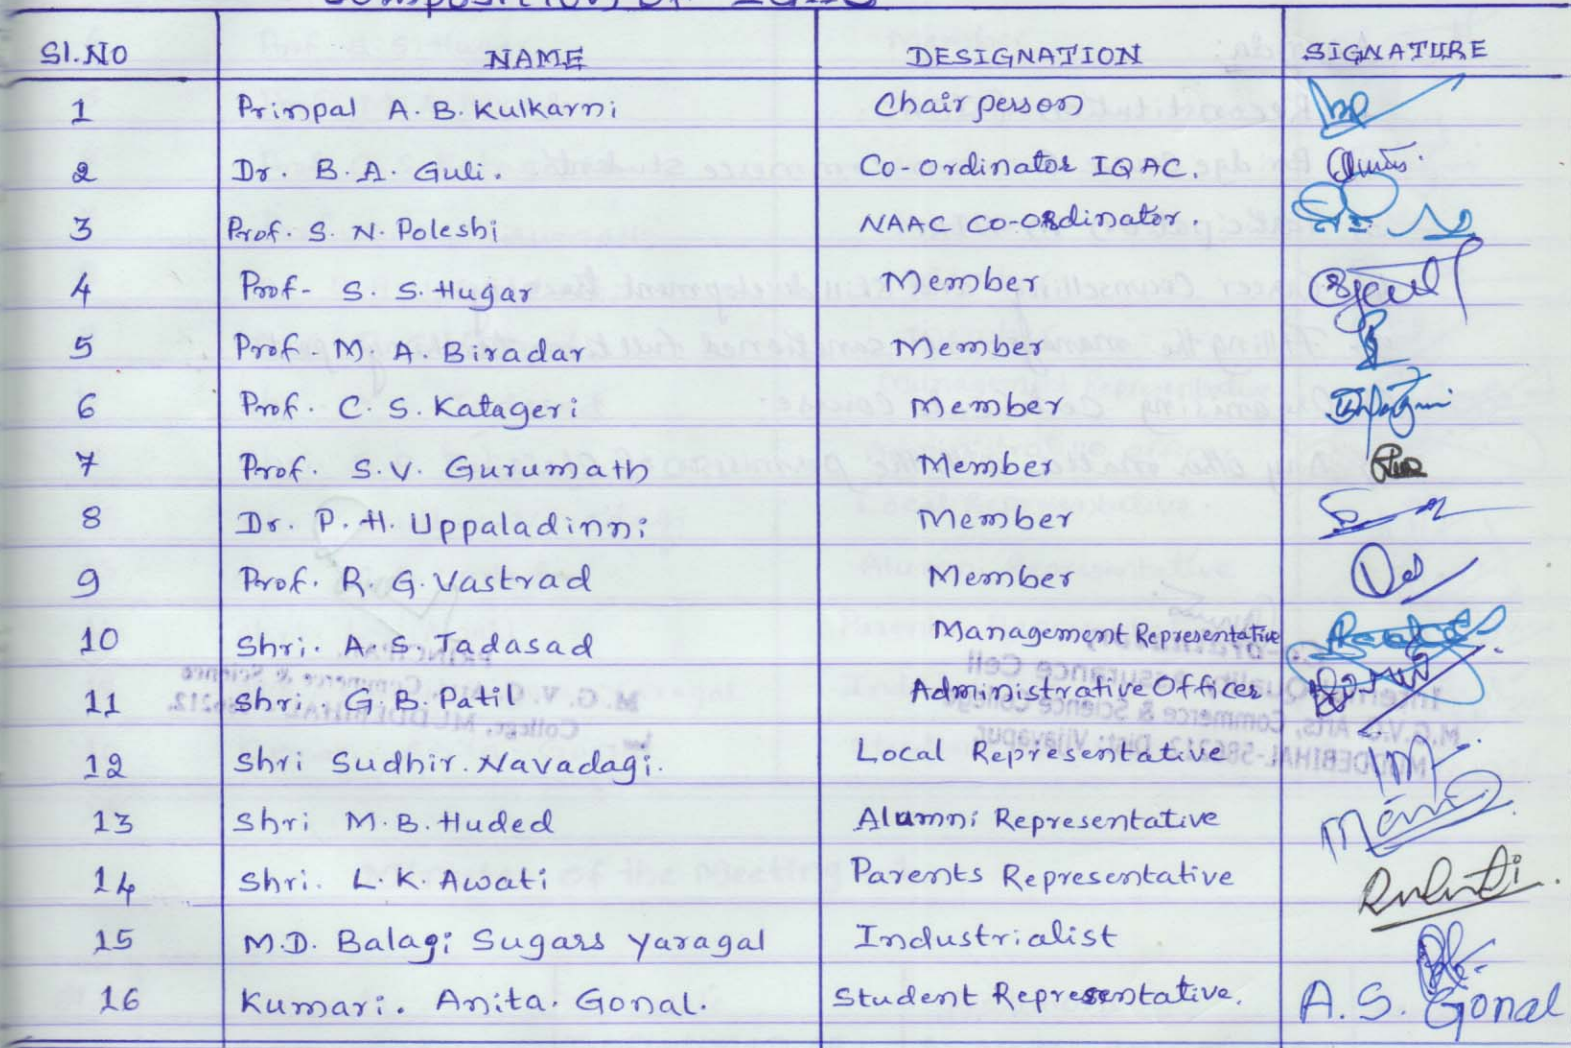 Composition of IQAC
Sl.NO NAME DESIGNATION SIGNATURE
1 Prinpal A. B. Kulkarni Chairperson
2 Dr. B. A. Guli. Co-ordinator IQAC.
3 Prof. S. N. Poleshi NAAC Co-ordinator.
4 Prof- S. S. Hugar Member
5 Prof- M. A. Biradar Member
6 Prof. C. S. Katageri Member
7 Prof. S.V. Gurumath Member
8 Dr. P. H. Uppaladinni Member
9 Prof. R. G. Vastrad Member
10 Shri. A. S. Tadasad Management Representative
11 Shri. G. B. Patil Administrative Officer
12 Shri Sudhir. Navadagi. Local Representative
13 Shri M. B. Huded Alumni Representative
14 Shri. L. K. Awati Parents Representative
15 M.D. Balagi Sugars Yaragal Industrialist
16 Kumari. Anita. Gonal. Student Representative. A. S. Gonal